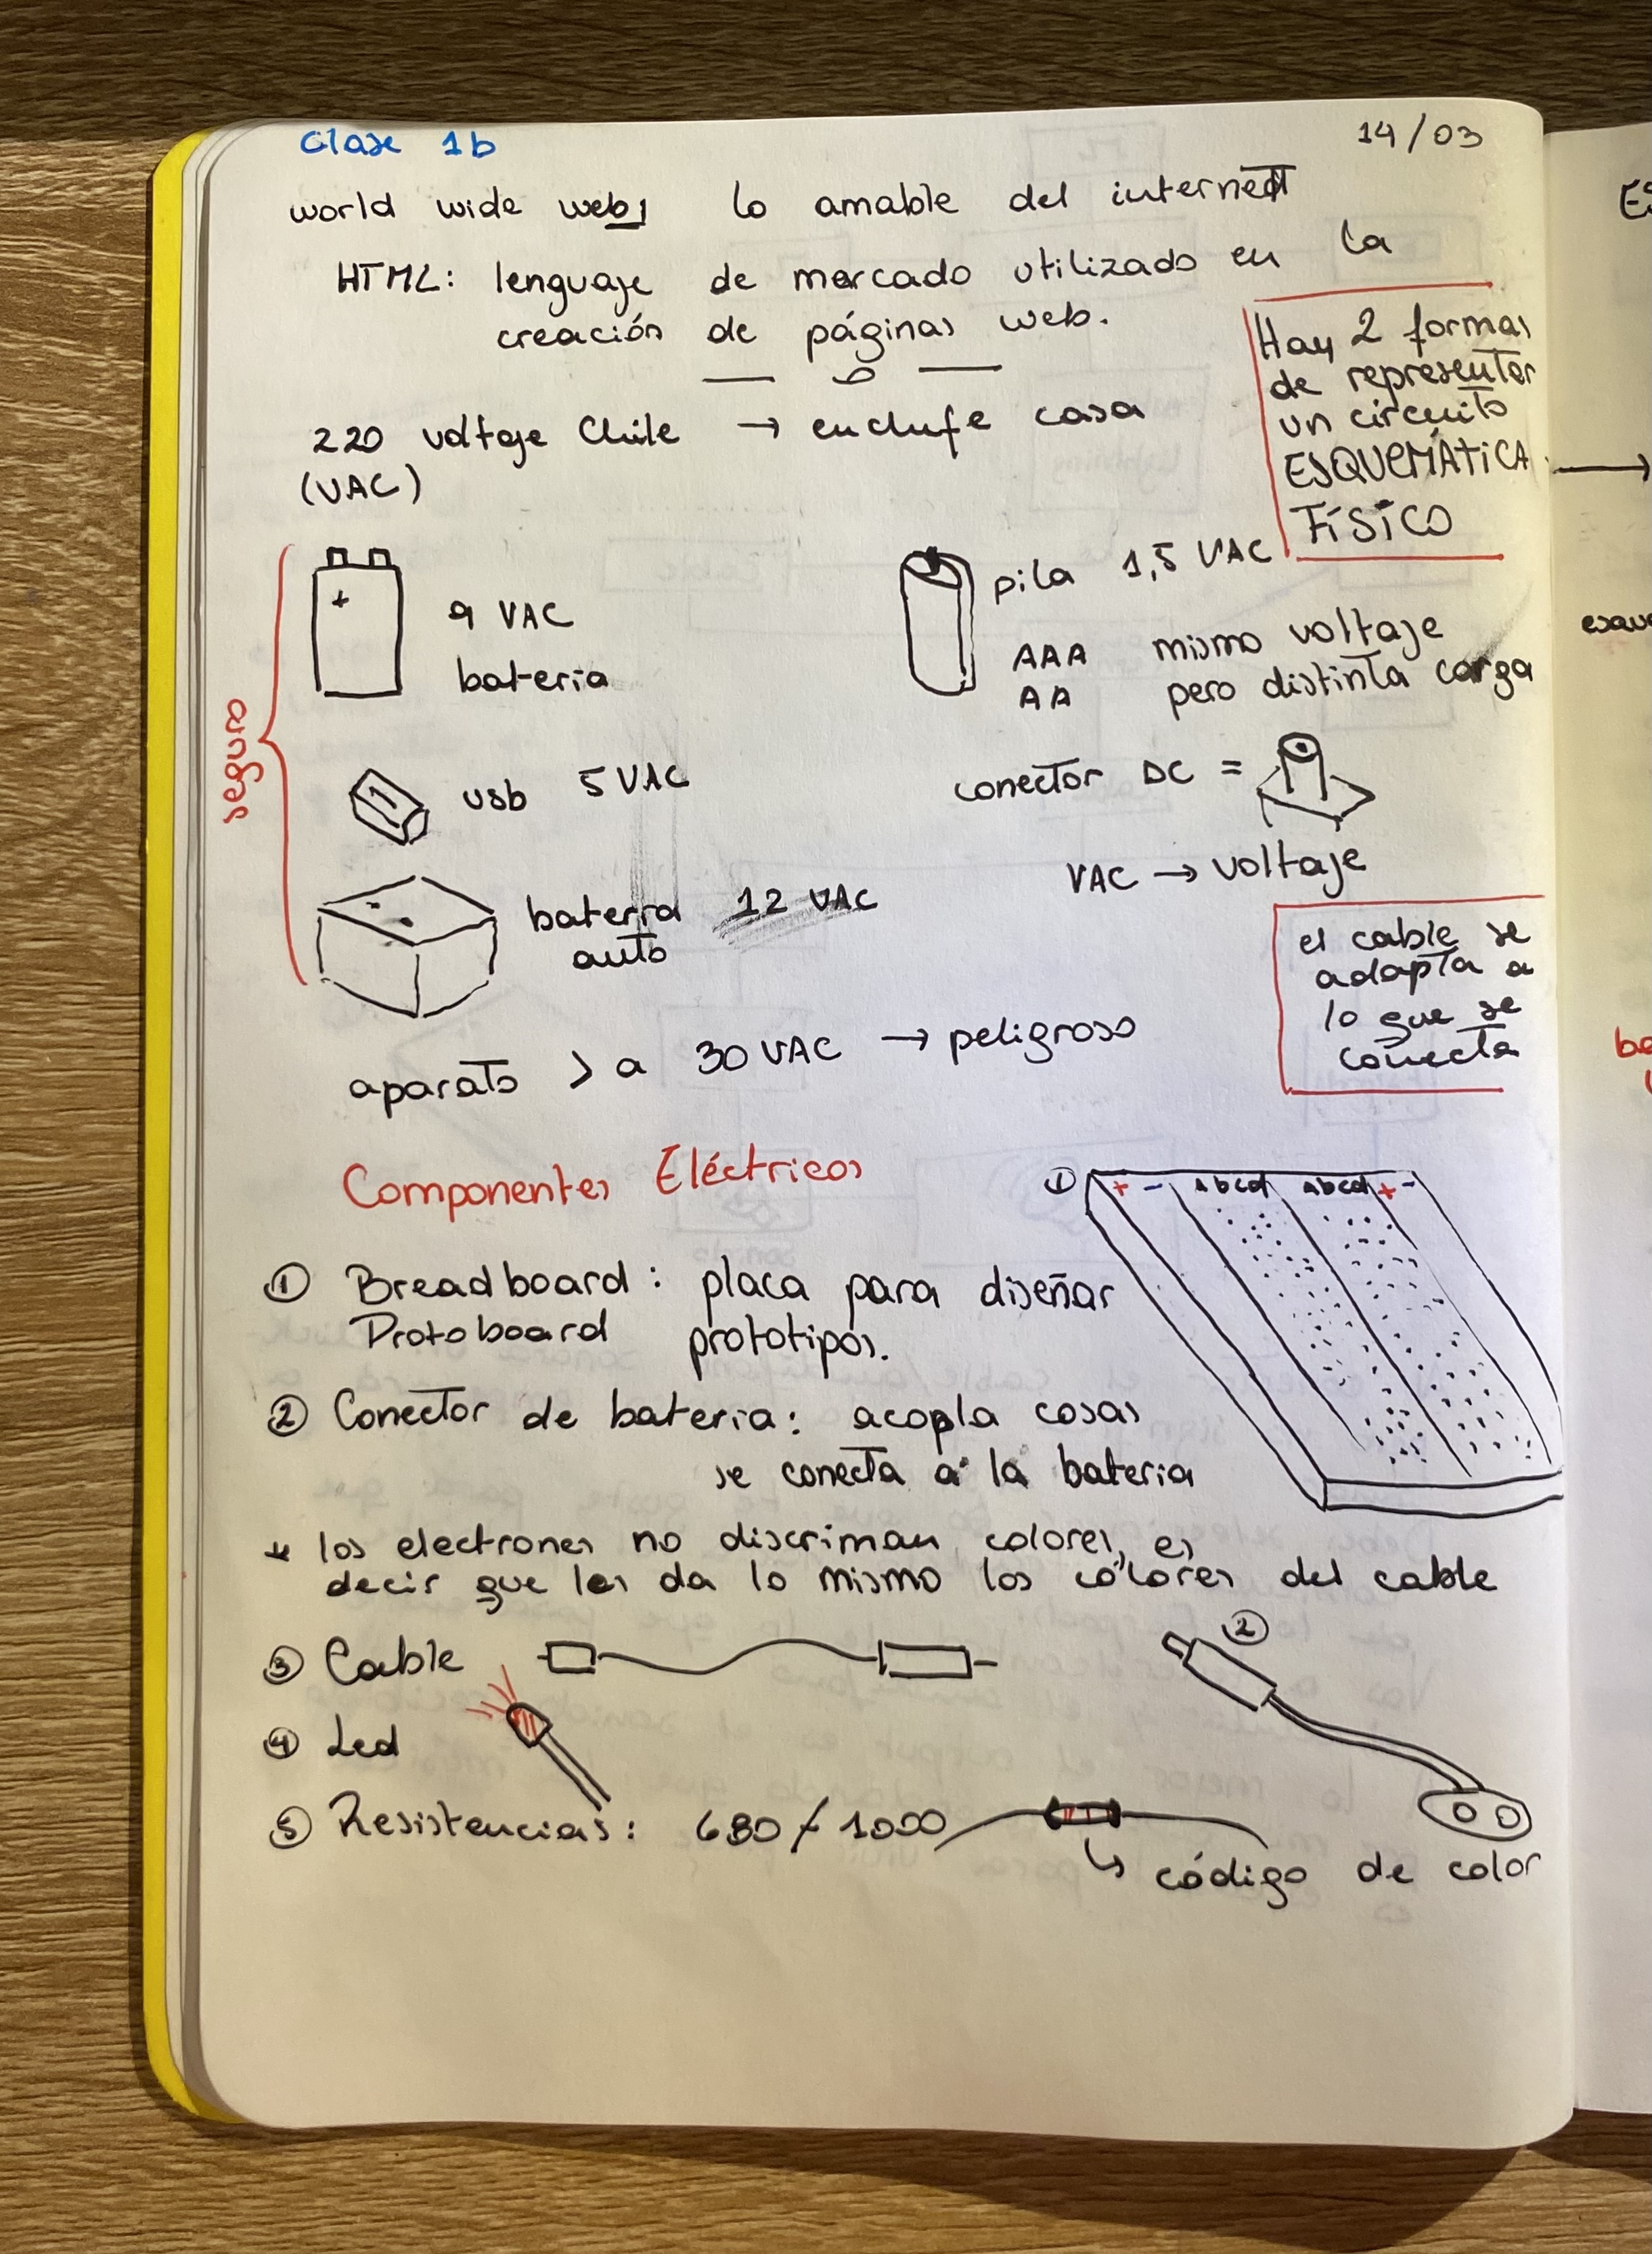 Clase 1b
14/03
world wide web, lo amable del internet
HTML: lenguaje de mercado utilizado en la
creación de páginas web.
220 voltaje Chile → enchufe casa
(VAC)
Hay 2 formas
de representar
un circuito
ESQUEMÁTICA
FÍSICO
seguro
+
9 VAC
bateria
pila 1,5 VAC
AAA mismo voltaje
AA pero distinta carga
usb 5 VAC
conector DC =
VAC → voltaje
bateria 12 VAC
auto
el cable se
adapta a
lo que se
conecta
aparato > a 30 VAC → peligroso
Componentes Eléctricos
① + - abcd abcd + -
① Breadboard: placa para diseñar
Protoboard prototipos.
② Conector de bateria: acopla cosas
se conecta a la bateria
* los electrones no discriman colores, es
decir que les da lo mismo los colores del cable
③ Cable
②
④ Led
⑤ Resistencias: 680 / 1000
↳ código de color